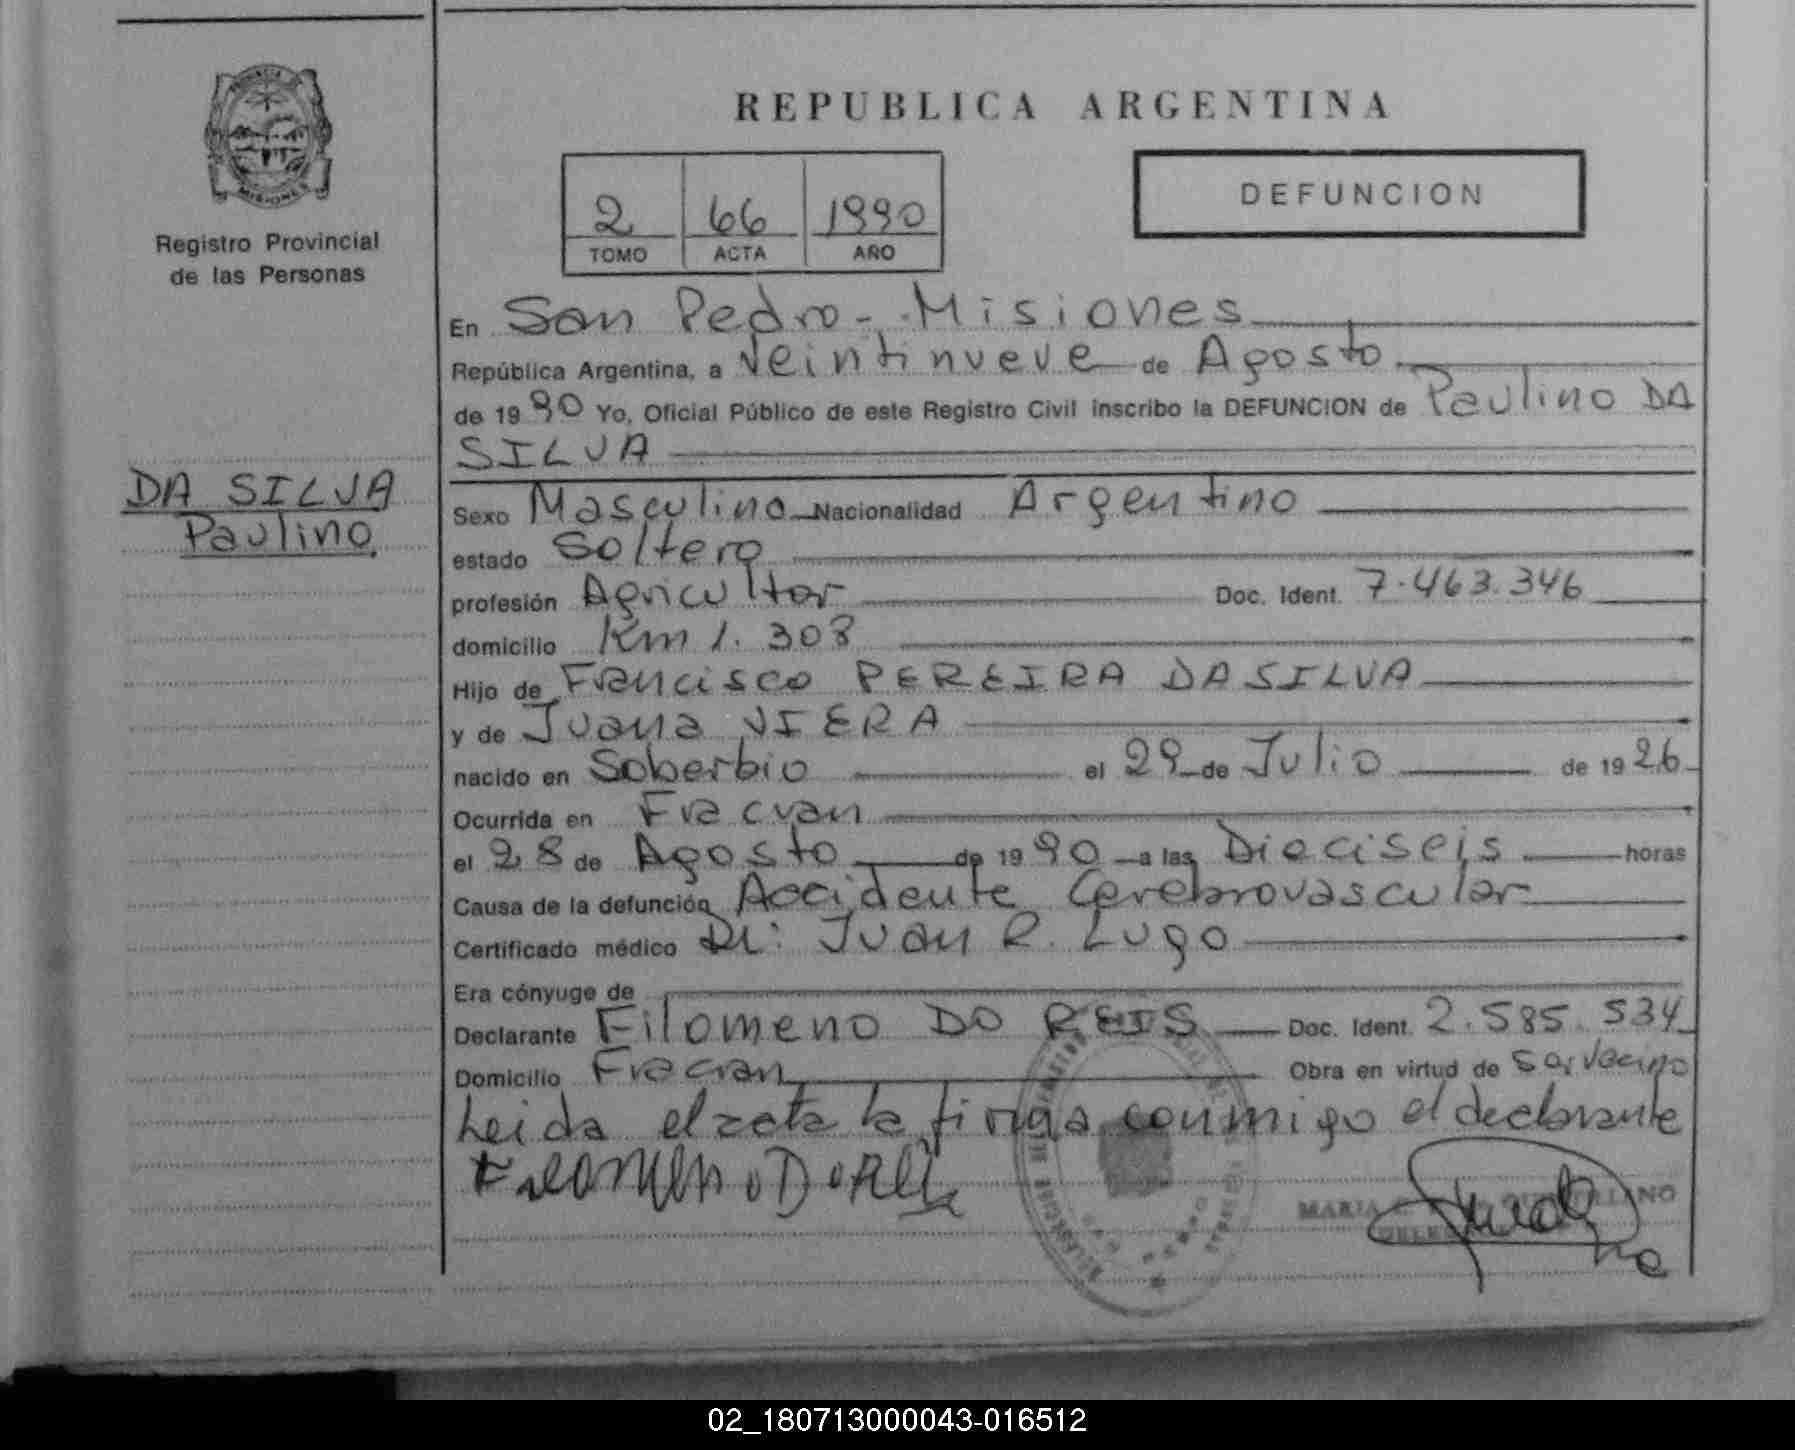 PROVINCIA DE
MISIONES
Registro Provincial
de las Personas
DA SILVA
Paulino
REPUBLICA ARGENTINA
2 66 1990
TOMO ACTA AÑO
DEFUNCION
En San Pedro - Misiones
República Argentina, a veintinueve de Agosto
de 1990 Yo, Oficial Público de este Registro Civil inscribo la DEFUNCION de Paulino DA
SILVA
Sexo Masculino Nacionalidad Argentino
estado Soltero
profesión Agricultor Doc. Ident. 7.463.346
domicilio Km 1.308
Hijo de Francisco PEREIRA DA SILVA
y de Juana VIERA
nacido en Soberbio el 29 de Julio de 1926
Ocurrida en Fracran
el 28 de Agosto de 1990 a las Dieciseis horas
Causa de la defunción Accidente Cerebrovascular
Certificado médico Dr: Juan R. Lugo
Era cónyuge de
Declarante Filomeno DO REIS Doc. Ident. 2.585.534
Domicilio Fracran Obra en virtud de ser vecino
Leida el acta la firma conmigo el declarante
MARIA
02_180713000043-016512